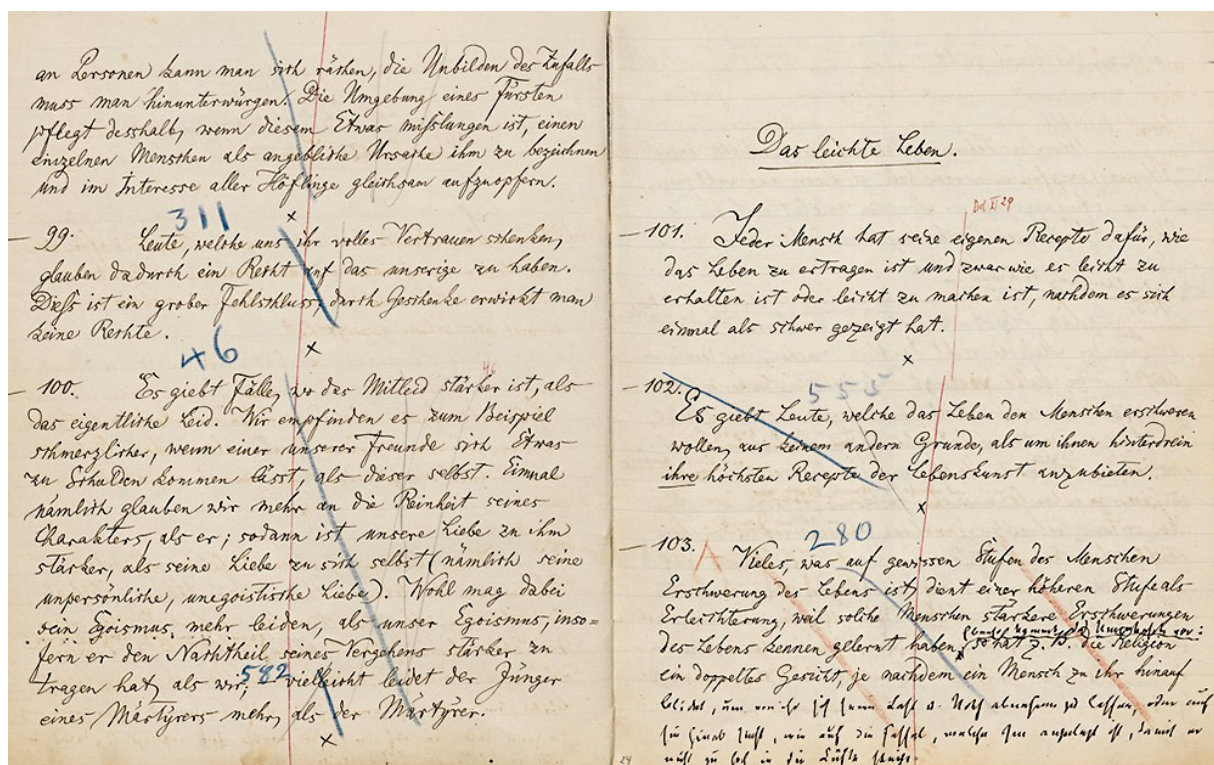 an Personen kann man sich rächen, die Unbilden des Zufalls
muss man hinunterwürgen. Die Umgebung eines Fürsten
pflegt desshalb, wenn diesem Etwas misslungen ist, einen
einzelnen Menschen als angebliche Ursache ihm zu bezeichnen
und im Interesse aller Höflinge gleichsam aufzuopfern.
311
99. Leute, welche uns ihr volles Vertrauen schenken,
glauben dadurch ein Recht auf das unserige zu haben.
Diess ist ein grober Fehlschluss, durch Geschenke erwirbt man
keine Rechte.
46
46
100. Es giebt Fälle, wo das Mitleid stärker ist, als
das eigentliche Leid. Wir empfinden es zum Beispiel
schmerzlicher, wenn einer unserer Freunde sich Etwas
zu Schulden kommen lässt, als dieser selbst. Einmal
nämlich glauben wir mehr an die Reinheit seines
Charakters, als er; sodann ist unsere Liebe zu ihm
stärker, als seine Liebe zu sich selbst (nämlich seine
unpersönliche, unegoistische Liebe). Wohl mag dabei
sein Egoismus mehr leiden, als unser Egoismus, inso=
fern er den Nachtheil seines Vergehens stärker zu
tragen hat, als wir; 582 vielleicht leidet der Jünger
eines Märtyrers mehr, als der Märtyrer.
Das leichte Leben.
101. Jeder Mensch hat seine eigenen Recepte dafür, wie
das Leben zu ertragen ist und zwar wie es leicht zu
erhalten ist oder leicht zu machen ist, nachdem es sich
einmal als schwer gezeigt hat.
555
102. Es giebt Leute, welche das Leben den Menschen erschweren
wollen, aus keinem andern Grunde, als um ihnen hinterdrein
ihre höchsten Recepte der Lebenskunst anzubieten.
280
103. Vieles, was auf gewissen Stufen des Menschen
Erschwerung des Lebens ist, dient einer höheren Stufe als
Erleichterung, weil solche Menschen stärkere Erschwerungen
des Lebens kennen gelernt haben, so hat z. B. die Religion
ein doppeltes Gesicht, je nachdem ein Mensch zu ihr hinauf
blickt, um von ihr sich seine Last u. Noth abnehmen zu lassen, oder auf
sie hinab sieht, wie auf die Fessel, welche ihm angelegt ist, damit er
nicht zu hoch in die Lüfte steige.
24